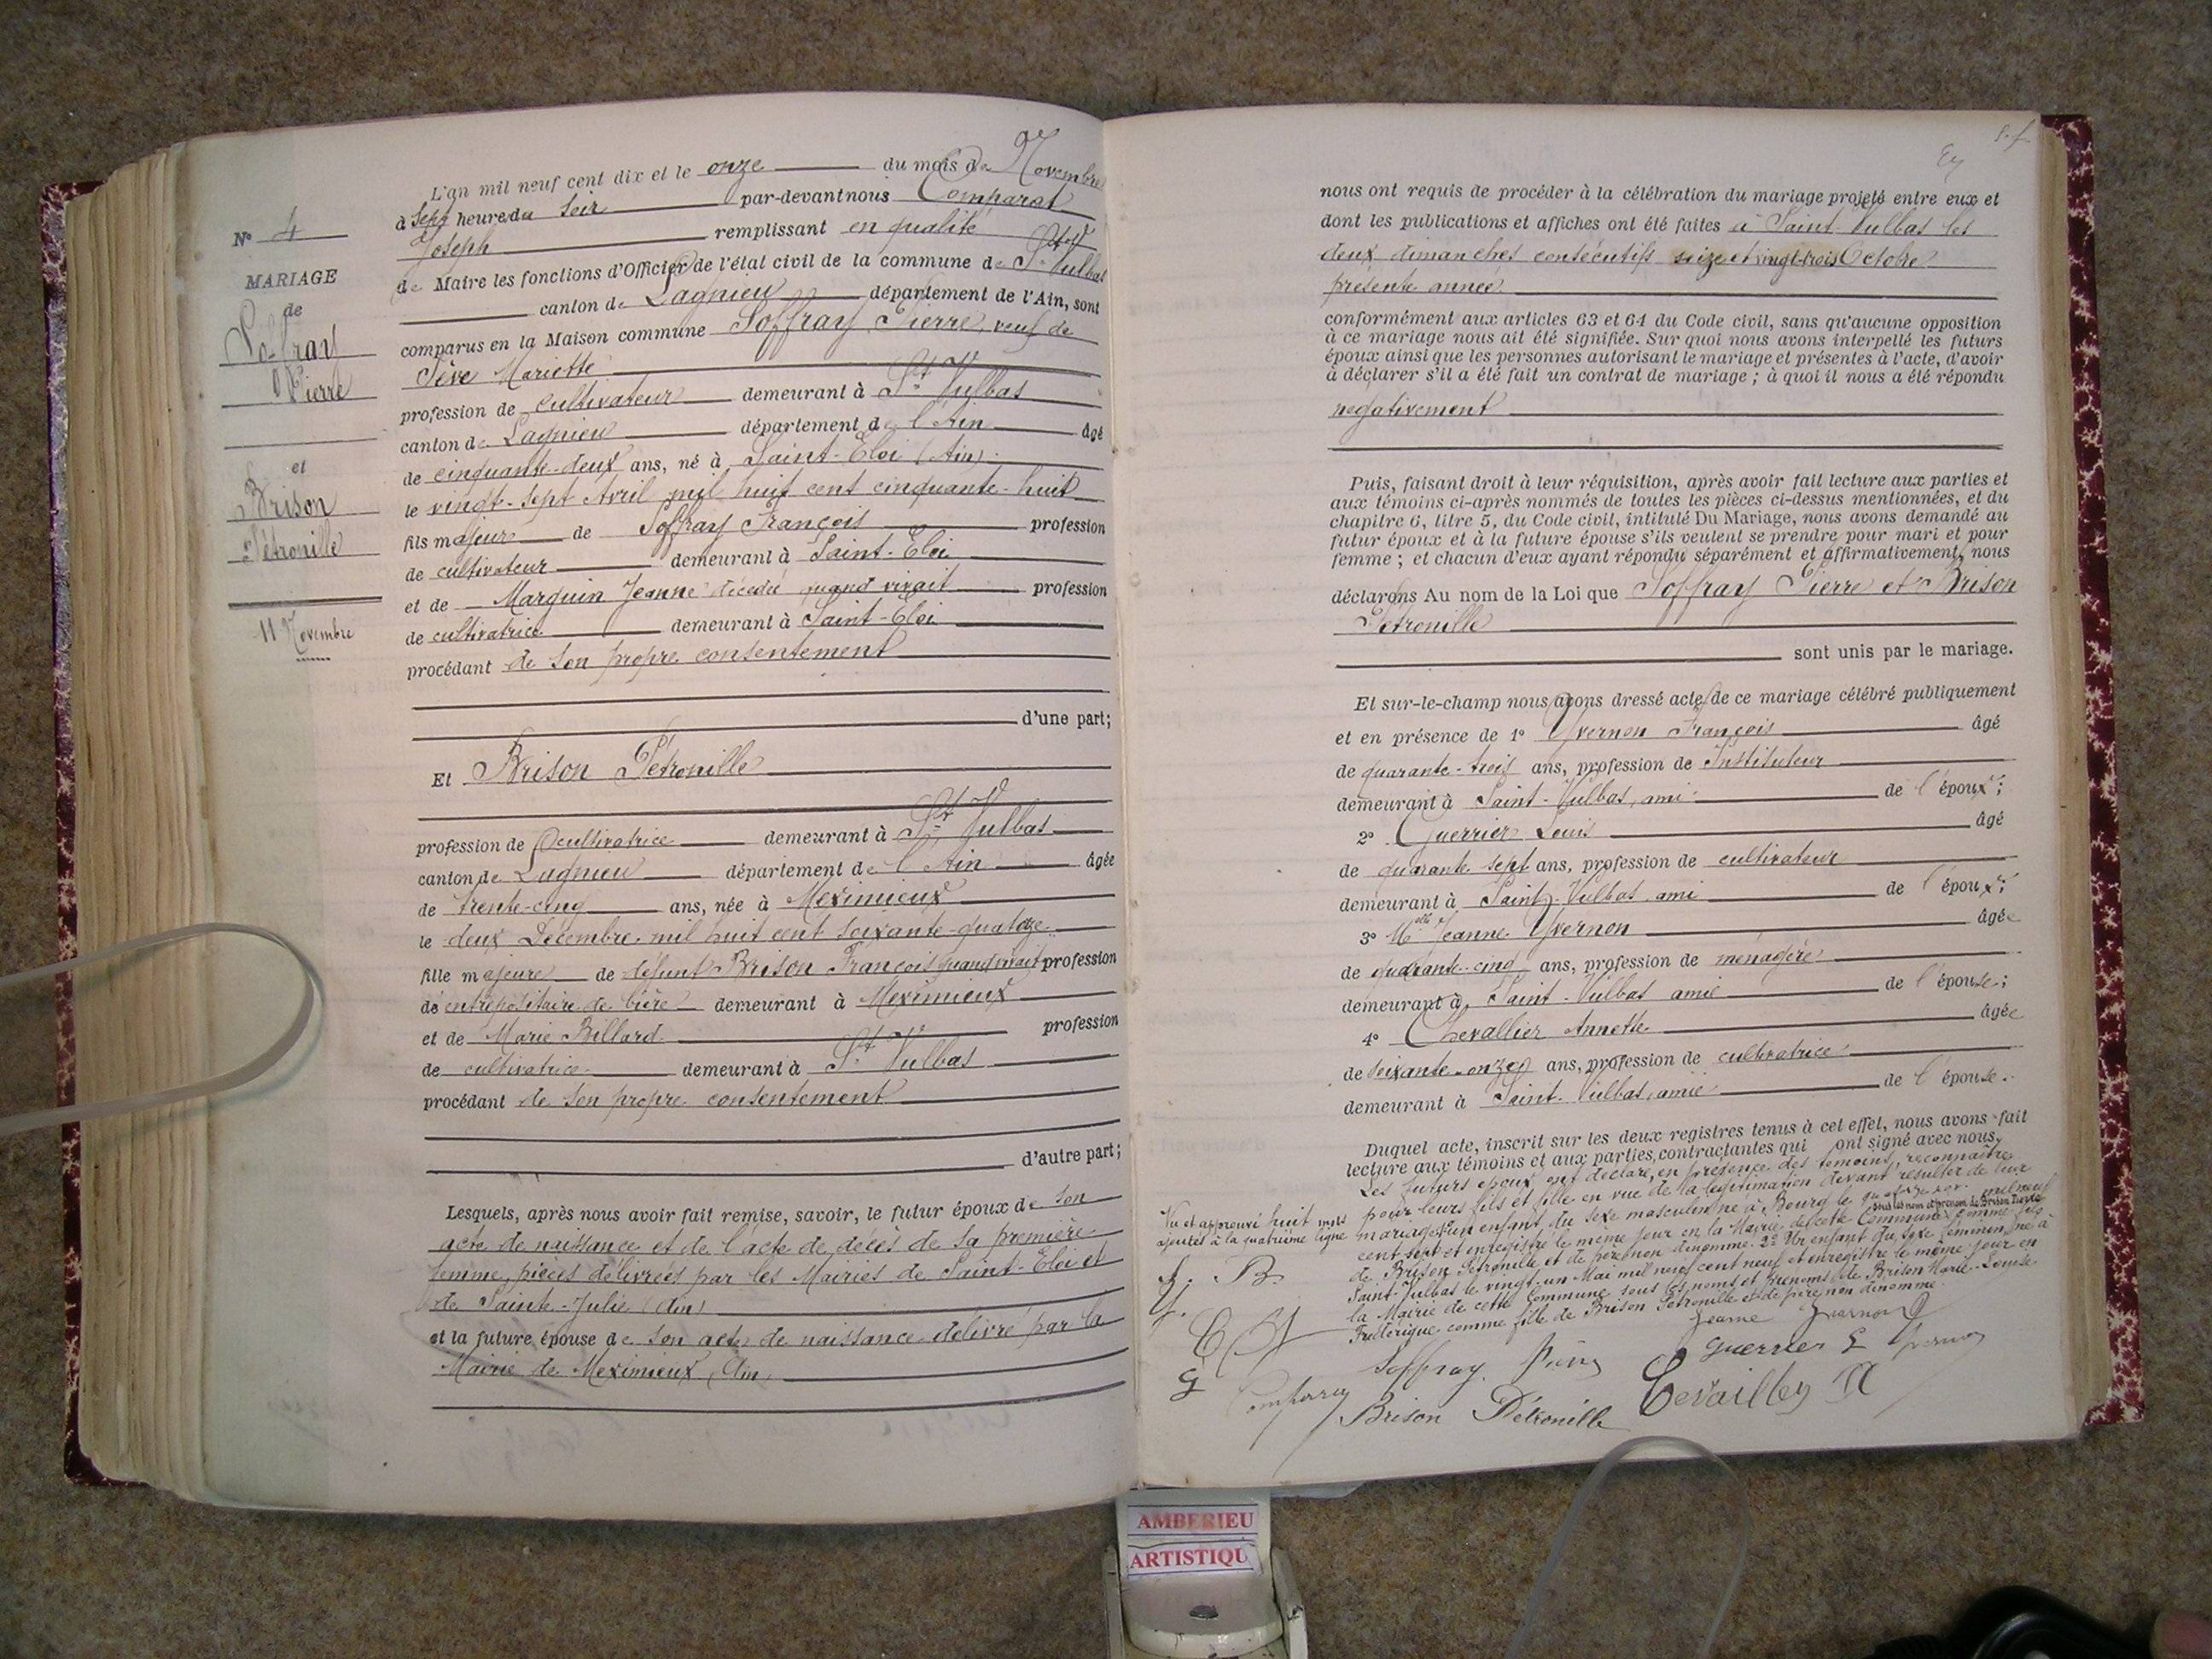 N° 4
MARIAGE
de
Soffray
Pierre
et
Brison
Pétronille
11 Novembre
L'an mil neuf cent dix et le onze du mois de Novembre
à sept heures du soir par-devant nous Comparat
Joseph remplissant en qualité
de Maire les fonctions d'Officier de l'état civil de la commune de St Vulbas
canton de Lagnieu département de l'Ain, sont
comparus en la Maison commune Soffray Pierre, veuf de
Sève Mariette
profession de cultivateur demeurant à St Vulbas
canton de Lagnieu département de l'Ain âgé
de cinquante-deux ans, né à Saint-Eloi (Ain)
le vingt-sept Avril mil huit cent cinquante-huit
fils majeur de Soffray François profession
de cultivateur demeurant à Saint-Eloi
et de Marguin Jeanne décédée quand vivait profession
de cultivatrice demeurant à Saint-Eloi
procédant de son propre consentement
d'une part;
Et Brison Pétronille
profession de cultivatrice demeurant à St Vulbas
canton de Lagnieu département de l'Ain âgée
de trente-cinq ans, née à Meximieux
le deux Décembre mil huit cent soixante-quatorze
fille majeure de défunt Brison François quand vivait profession
de entrepositaire de bière demeurant à Meximieux
et de Marie Billard profession
de cultivatrice demeurant à St Vulbas
procédant de son propre consentement
d'autre part;
Lesquels, après nous avoir fait remise, savoir, le futur époux de son
acte de naissance et de l'acte de décès de sa première
femme, pièces délivrées par les Mairies de Saint-Eloi et
de Sainte-Julie (Ain)
et la future épouse de son acte de naissance délivré par la
Mairie de Meximieux (Ain)
nous ont requis de procéder à la célébration du mariage projeté entre eux et
dont les publications et affiches ont été faites à Saint-Vulbas les
deux dimanches consécutifs seize et vingt-trois Octobre
présente année
conformément aux articles 63 et 64 du Code civil, sans qu'aucune opposition
à ce mariage nous ait été signifiée. Sur quoi nous avons interpellé les futurs
époux ainsi que les personnes autorisant le mariage et présentes à l'acte, d'avoir
à déclarer s'il a été fait un contrat de mariage ; à quoi il nous a été répondu
negativement
Puis, faisant droit à leur réquisition, après avoir fait lecture aux parties et
aux témoins ci-après nommés de toutes les pièces ci-dessus mentionnées, et du
chapitre 6, titre 5, du Code civil, intitulé Du Mariage, nous avons demandé au
futur époux et à la future épouse s'ils veulent se prendre pour mari et pour
femme ; et chacun d'eux ayant répondu séparément et affirmativement, nous
déclarons Au nom de la Loi que Soffray Pierre et Brison
Pétronille
sont unis par le mariage.
Et sur-le-champ nous avons dressé acte de ce mariage célébré publiquement
et en présence de 1° Yvernon François âgé
de quarante-trois ans, profession de Instituteur
demeurant à Saint-Vulbas, ami de l'époux;
2° Guerrier Louis âgé
de quarante sept ans, profession de cultivateur
demeurant à Saint-Vulbas, ami de l'époux;
3° Mlle Jeanne Yvernon âgée
de quarante-cinq ans, profession de ménagère
demeurant à Saint-Vulbas amie de l'épouse;
4° Chevallier Annette âgée
de soixante-onze ans, profession de cultivatrice
demeurant à Saint-Vulbas, amie de l'épouse.
Duquel acte, inscrit sur les deux registres tenus à cet effet, nous avons fait
lecture aux témoins et aux parties contractantes qui ont signé avec nous.
Les futurs époux ont déclaré, en présence des témoins, reconnaître
pour leurs fils et fille en vue de la légitimation devant résulter de leur
mariage: Un enfant du sexe masculin né à Bourg le mil neuf
sous les nom et prénom de Brison Pierre
cent sept et enregistré le même jour en la Mairie de cette Commune comme fils
de Brison Pétronille et de père non dénommé. 2° Un enfant du sexe féminin, né à
Saint-Vulbas le vingt-un Mai mil neuf cent neuf et enregistré le même jour en
la Mairie de cette Commune sous les noms et prénoms de Brison Marie-Louise
Frédérique comme fille de Brison Pétronille et de père non dénommé.
Vu et approuvé huit mots
ajoutés à la quatrième ligne
Jeanne Yvernon
Soffray Pierre
Guerrier L Yvernon
Comparat
Brison Pétronille
AMBERIEU
ARTISTIQU